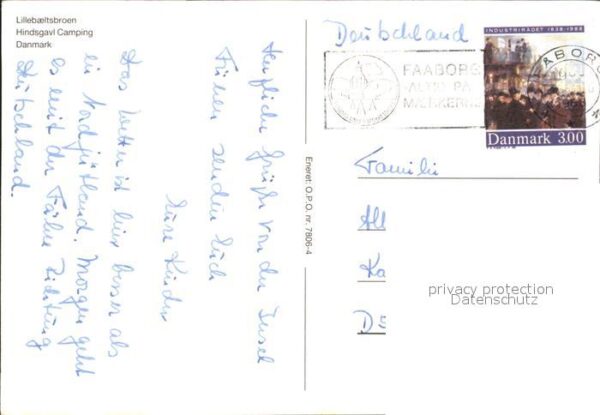 Lillebæltsbroen
Hindsgavl Camping
Danmark
Herzliche Grüße von der Insel
Fünen senden Euch
Eure Kinder
Das Wetter ist hier besser als
in Nordjütland. Morgen geht
es mit der Fähre Richtung
Deutschland.
Eneret: O.P.O. nr. 7806-4
Deutschland
FAABORG
ALTID PÅ
MÆRKERNE
INDUSTRIRÅDET 1838-1988
Danmark 3.00
Familie
All
Ka
D5
privacy protection
Datenschutz